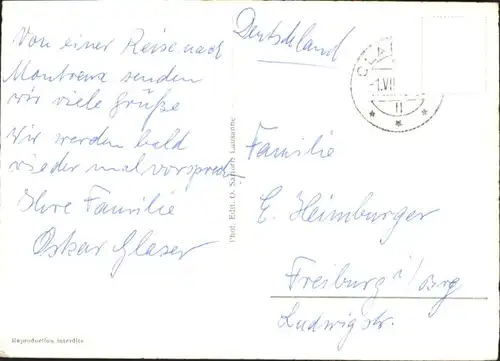 Von einer Reise nach
Montreux senden
wir viele Grüße
Wir werden bald
wieder mal vorsprech.
Ihre Familie
Oskar Glaser
Reproduction interdite
Phot. Edit. O. Lausanne
Deutschland
CLA
-1.VII
Familie
E. Heimburger
Freiburg i/Brg
Ludwigstr.